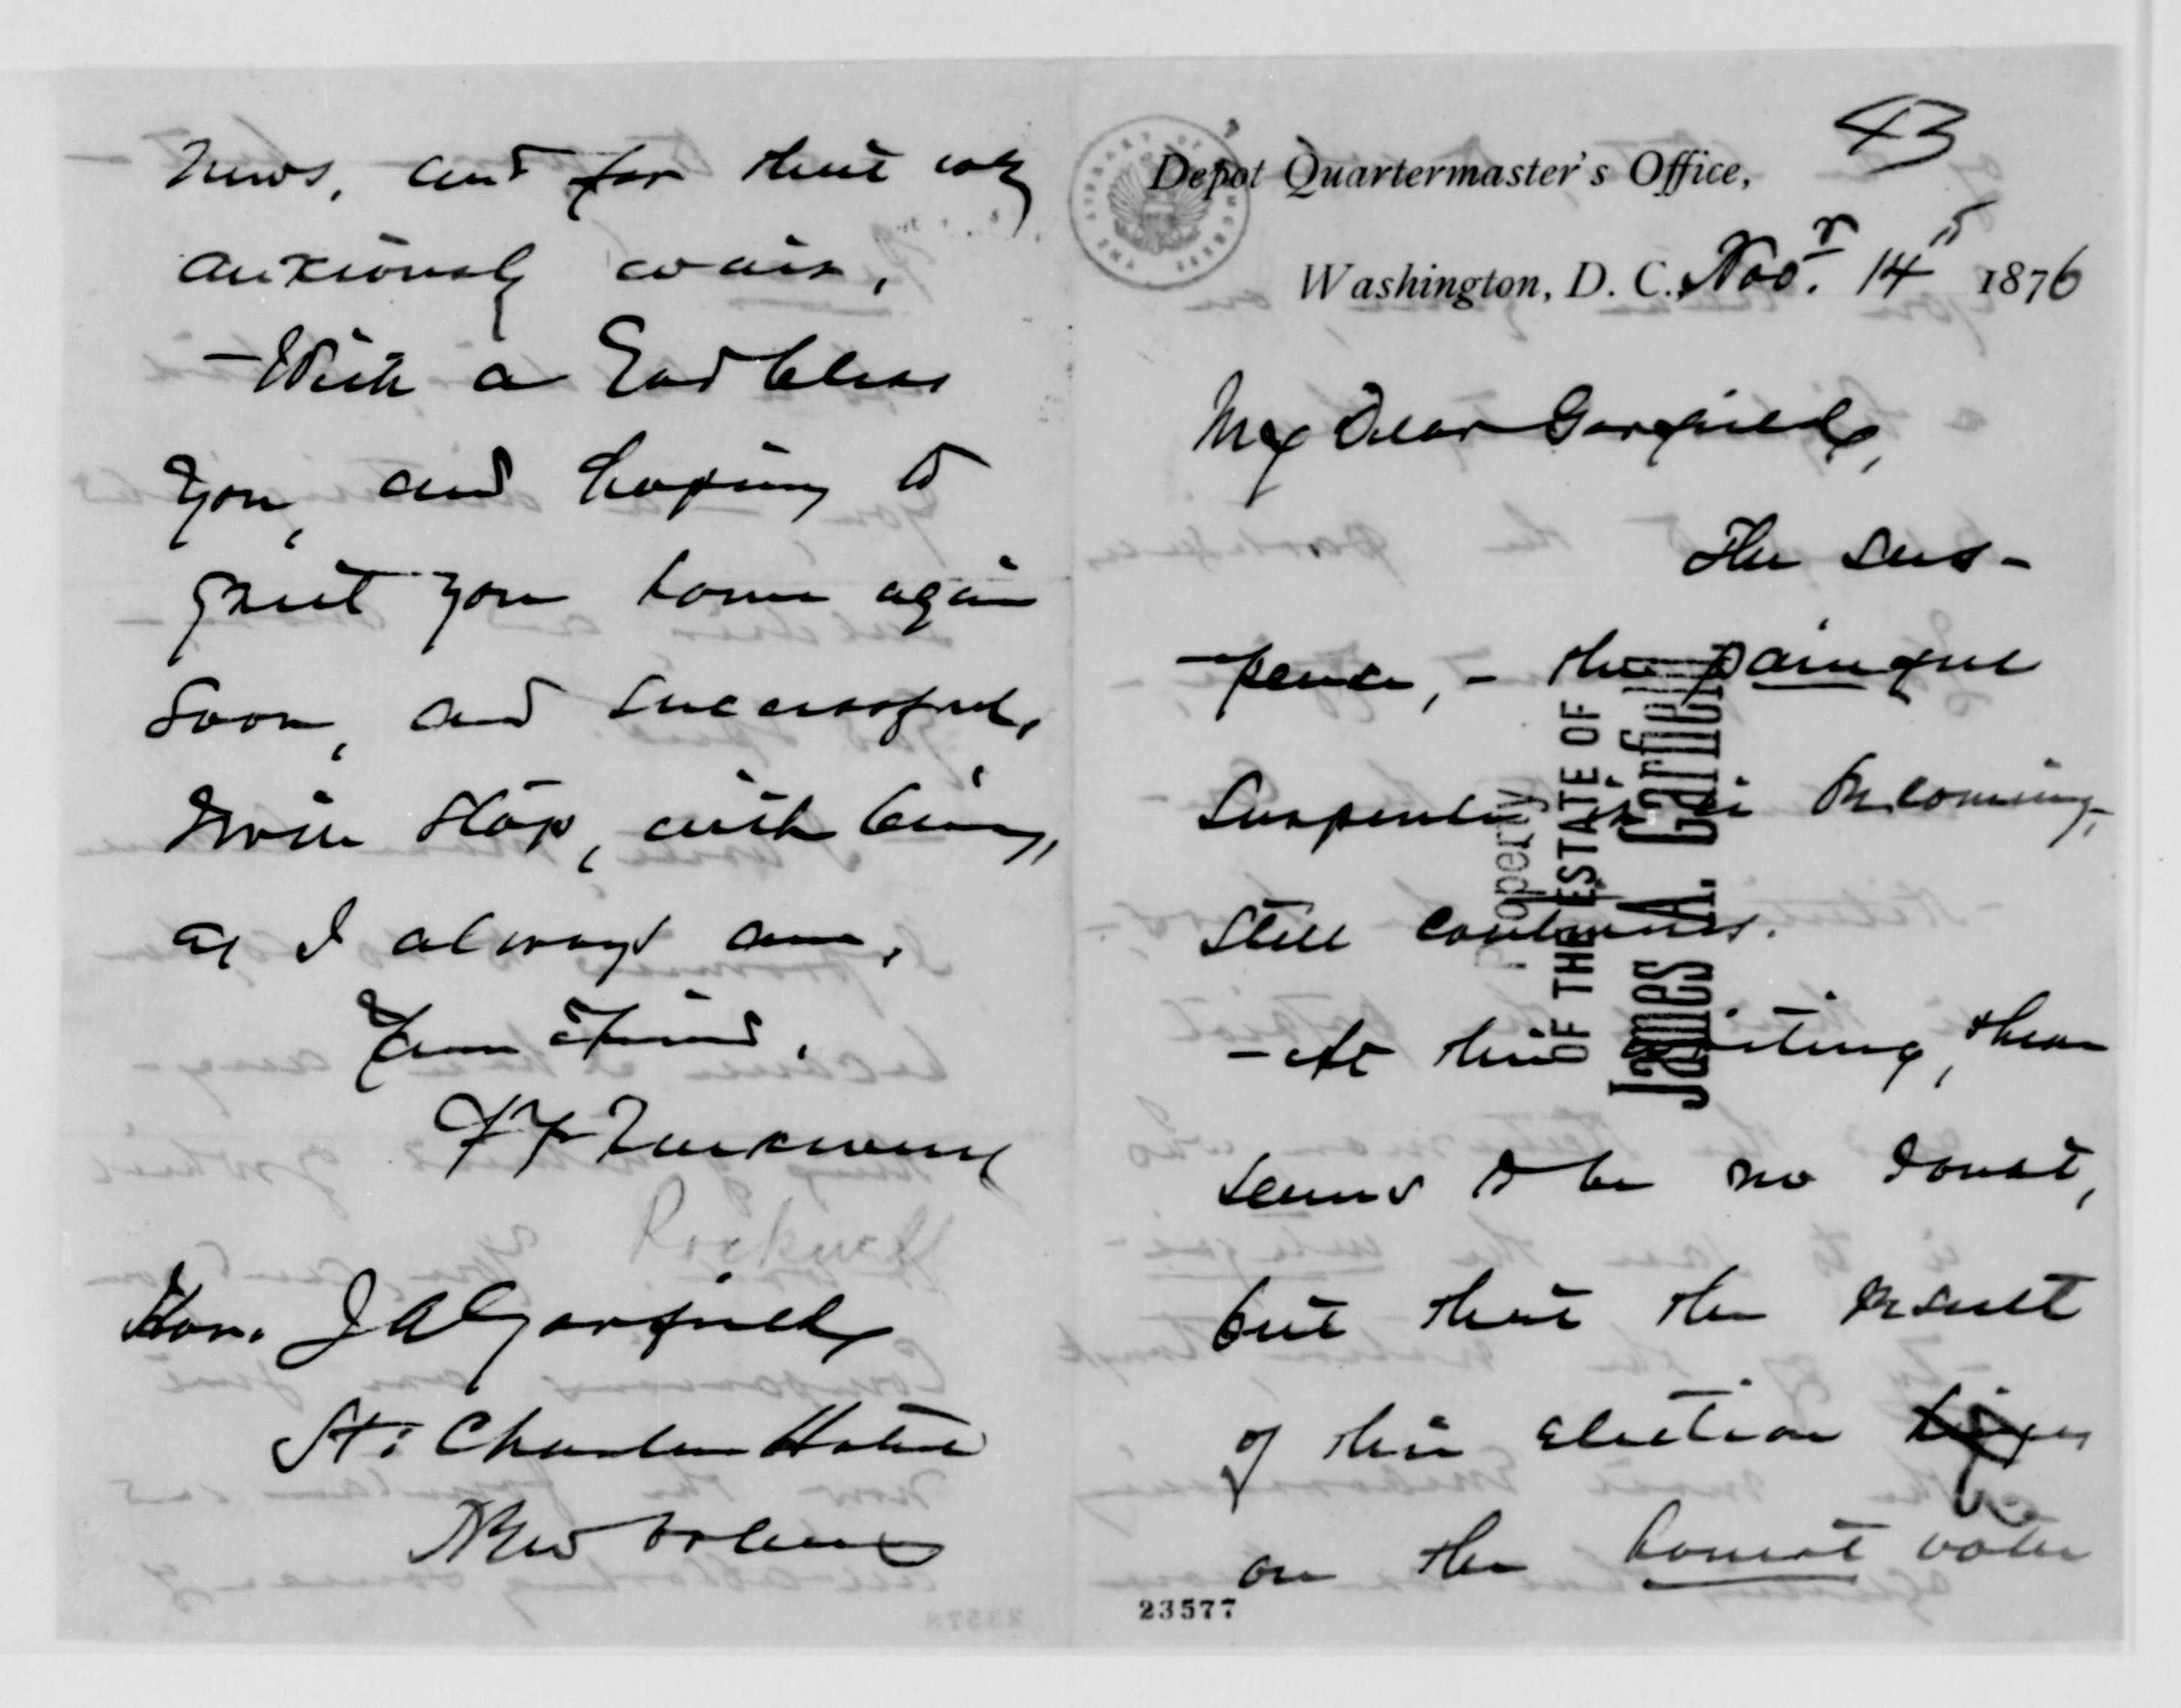 news, and for that we
anxiously wait.
- With a God bless
you, and hoping to
greet you home again
soon, and successful,
I will stop, with being,
as I always am,
Your Friend,
A F Rockwell
Rockwell
Hon. J A Garfield
St. Charles Hotel
New Orleans
43
Depot Quartermaster's Office,
Washington, D. C., Nov.r 14th 1876
My Dear Garfield,
The sus-
-pense, - the painful
suspense it is becoming,
still continues.
- At this writing, there
seems to be no doubt,
but that the result
of this election
on the honest vote
23577
Property
OF THE ESTATE OF
James A. Garfield